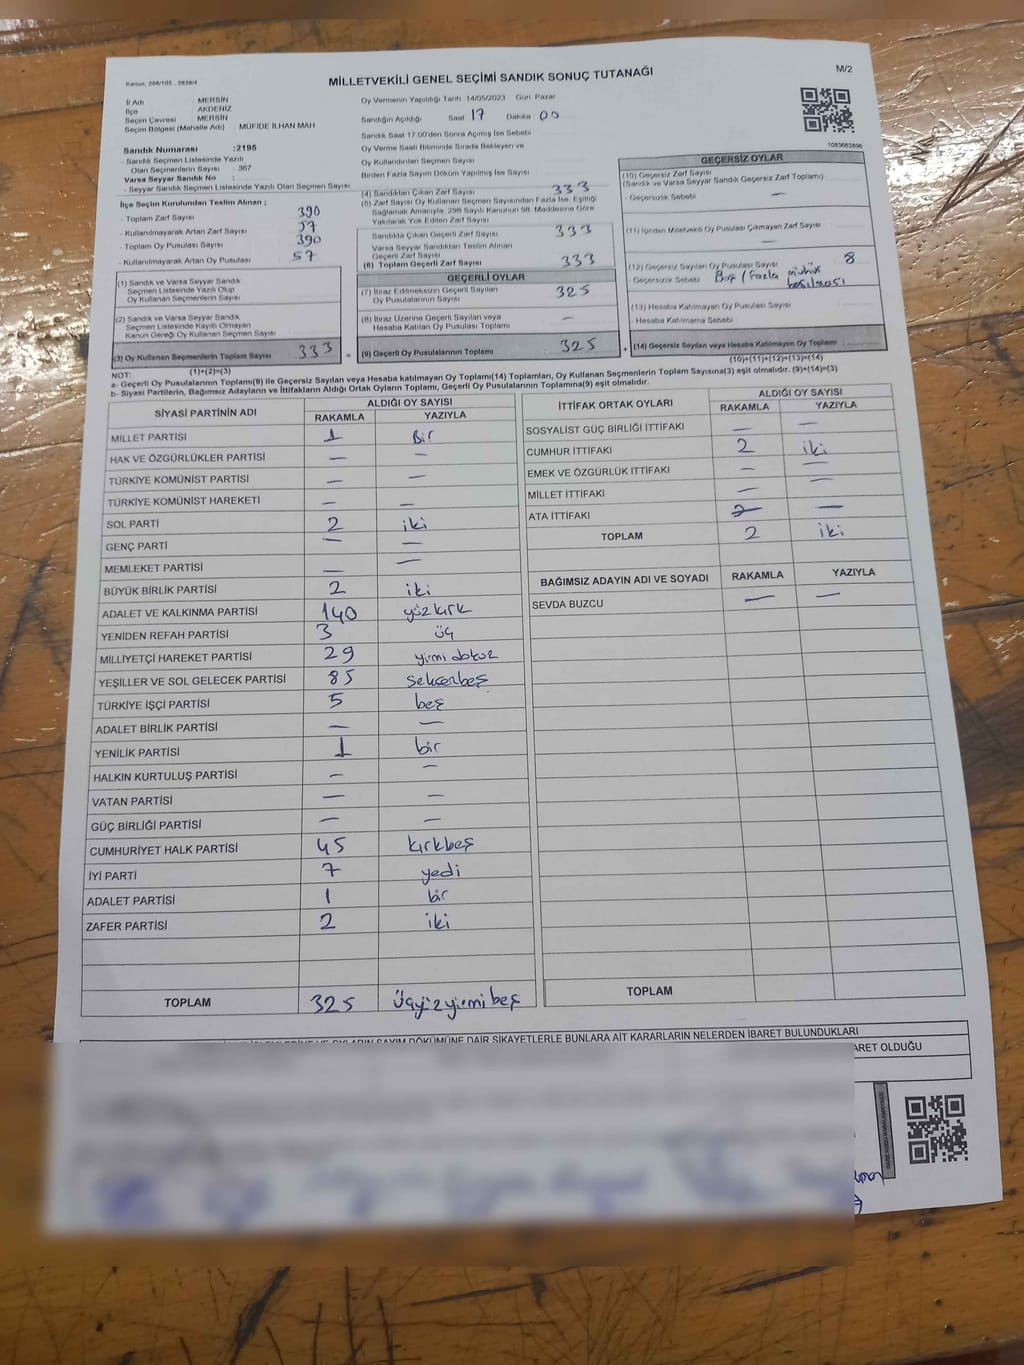 Kanun: 298/105 , 2839/4
MİLLETVEKİLİ GENEL SEÇİMİ SANDIK SONUÇ TUTANAĞI
M/2
İl Adı : MERSİN
İlçe : AKDENİZ
Seçim Çevresi : MERSİN
Seçim Bölgesi (Mahalle Adı) : MÜFİDE İLHAN MAH
Sandık Numarası :2195
- Sandık Seçmen Listesinde Yazılı
Olan Seçmenlerin Sayısı : 367
Varsa Seyyar Sandık No :
- Seyyar Sandık Seçmen Listesinde Yazılı Olan Seçmen Sayısı
İlçe Seçim Kurulundan Teslim Alınan ;
- Toplam Zarf Sayısı 390
- Kullanılmayarak Artan Zarf Sayısı 57
- Toplam Oy Pusulası Sayısı 390
- Kullanılmayarak Artan Oy Pusulası 57
(1) Sandık ve Varsa Seyyar Sandık
Seçmen Listesinde Yazılı Olup
Oy Kullanan Seçmenlerin Sayısı
(2) Sandık ve Varsa Seyyar Sandık
Seçmen Listesinde Kayıtlı Olmayan
Kanun Gereği Oy Kullanan Seçmen Sayısı
(3) Oy Kullanan Seçmenlerin Toplam Sayısı 333
(1)+(2)=(3)
Oy Vermenin Yapıldığı Tarih 14/05/2023 Gün: Pazar
Sandığın Açıldığı Saat 17 Dakika 00
Sandık Saat 17:00'den Sonra Açımış İse Sebebi
Oy Verme Saati Bitiminde Sırada Bekleyen ve
Oy Kullandırılan Seçmen Sayısı
Birden Fazla Sayım Döküm Yapılmış İse Sayısı
(4) Sandıktan Çıkan Zarf Sayısı 333
(5) Zarf Sayısı Oy Kullanan Seçmen Sayısından Fazla İse, Eşitliği
Sağlamak Amacıyla, 298 Sayılı Kanunun 98. Maddesine Göre
Yakılarak Yok Edilen Zarf Sayısı
Sandıkta Çıkan Geçerli Zarf Sayısı 333
Varsa Seyyar Sandıktan Teslim Alınan
Geçerli Zarf Sayısı
(6) Toplam Geçerli Zarf Sayısı 333
GEÇERLİ OYLAR
(7) İtiraz Edilmeksizin Geçerli Sayılan
Oy Pusulalarının Sayısı 325
(8) İtiraz Üzerine Geçerli Sayılan veya
Hesaba Katılan Oy Pusulası Toplamı —
(9) Geçerli Oy Pusulalarının Toplamı 325
1083663896
GEÇERSİZ OYLAR
(10) Geçersiz Zarf Sayısı
(Sandık ve Varsa Seyyar Sandık Geçersiz Zarf Toplamı) :
- Geçersizlik Sebebi : —
(11) İçinden Milletvekili Oy Pusulası Çıkmayan Zarf Sayısı
—
(12) Geçersiz Sayılan Oy Pusulası Sayısı : 8
Geçersizlik Sebebi : Boş / Fazla mühür
basılması
(13) Hesaba Katılmayan Oy Pusulası Sayısı
- Hesaba Katılmama Sebebi :
(14) Geçersiz Sayılan veya Hesaba Katılmayan Oy Toplamı :
(10)+(11)+(12)+(13)=(14)
NOT:
a- Geçerli Oy Pusulalarının Toplamı(9) ile Geçersiz Sayılan veya Hesaba katılmayan Oy Toplamı(14) Toplamları, Oy Kullanan Seçmenlerin Toplam Sayısına(3) eşit olmalıdır. (9)+(14)=(3)
b- Siyasi Partilerin, Bağımsız Adayların ve İttifakların Aldığı Ortak Oyların Toplamı, Geçerli Oy Pusulalarının Toplamına(9) eşit olmalıdır.
SİYASİ PARTİNİN ADI ALDIĞI OY SAYISI
RAKAMLA YAZIYLA
MİLLET PARTİSİ 1 Bir
HAK VE ÖZGÜRLÜKLER PARTİSİ — —
TÜRKİYE KOMÜNİST PARTİSİ — —
TÜRKİYE KOMÜNİST HAREKETİ — —
SOL PARTİ 2 iki
GENÇ PARTİ — —
MEMLEKET PARTİSİ — —
BÜYÜK BİRLİK PARTİSİ 2 iki
ADALET VE KALKINMA PARTİSİ 140 yüzkırk
YENİDEN REFAH PARTİSİ 3 üç
MİLLİYETÇİ HAREKET PARTİSİ 29 yirmi dokuz
YEŞİLLER VE SOL GELECEK PARTİSİ 85 seksenbeş
TÜRKİYE İŞÇİ PARTİSİ 5 beş
ADALET BİRLİK PARTİSİ — —
YENİLİK PARTİSİ 1 bir
HALKIN KURTULUŞ PARTİSİ — —
VATAN PARTİSİ — —
GÜÇ BİRLİĞİ PARTİSİ — —
CUMHURİYET HALK PARTİSİ 45 kırkbeş
İYİ PARTİ 7 yedi
ADALET PARTİSİ 1 bir
ZAFER PARTİSİ 2 iki
TOPLAM 325 Üçyüzyirmibeş
İTTİFAK ORTAK OYLARI ALDIĞI OY SAYISI
RAKAMLA YAZIYLA
SOSYALİST GÜÇ BİRLİĞİ İTTİFAKI — —
CUMHUR İTTİFAKI 2 iki
EMEK VE ÖZGÜRLÜK İTTİFAKI — —
MİLLET İTTİFAKI — —
ATA İTTİFAKI — —
TOPLAM 2 iki
BAĞIMSIZ ADAYIN ADI VE SOYADI RAKAMLA YAZIYLA
SEVDA BUZCU — —
TOPLAM
OYLARIN SAYIM DÖKÜMÜNE DAİR ŞİKAYETLERLE BUNLARA AİT KARARLARIN NELERDEN İBARET BULUNDUKLARI
OLDUĞU